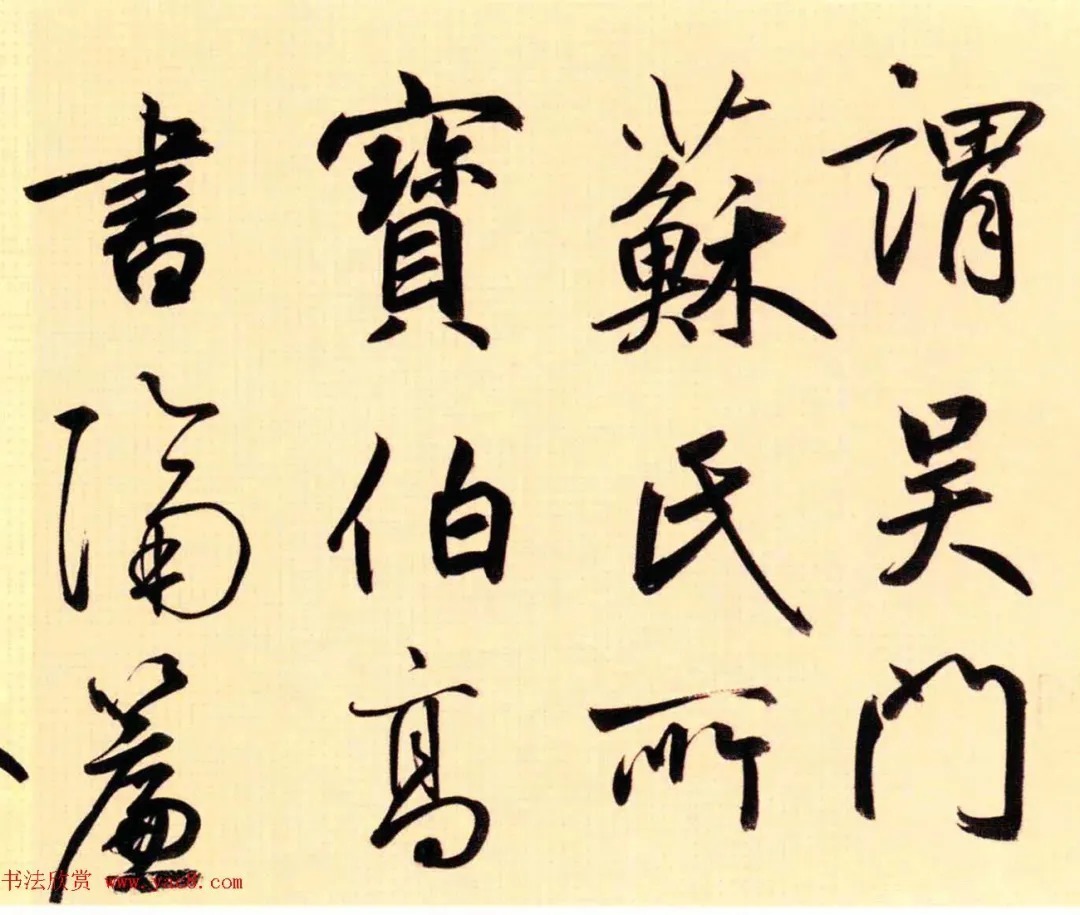 謂吳門
蘇氏所
寶伯高
書隔簾
书法欣赏 www.yac8.com